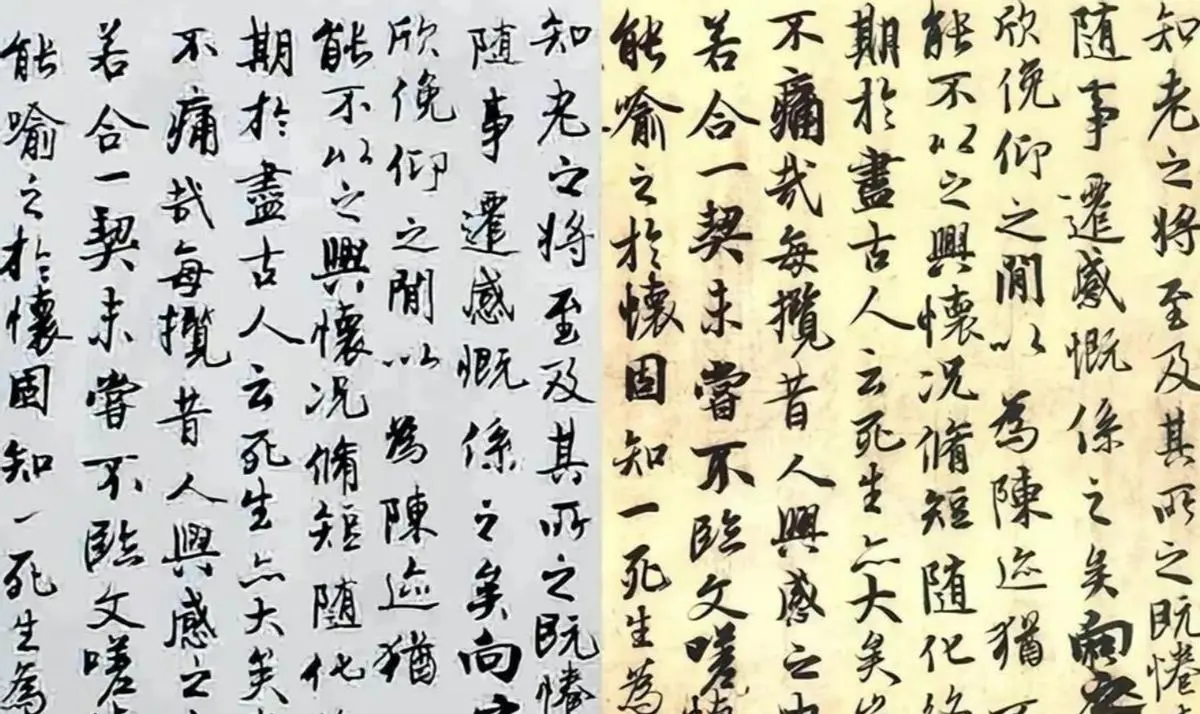 知老之将至及其所之既惓
随事遷感慨係之矣向
欣俛仰之閒以為陳迹猶
能不以之興懷况脩短随化
期於盡古人云死生亦大矣
不痛哉每攬昔人興感之
若合一契未嘗不臨文嗟
能喻之於懷固知一死生為
知老之将至及其所之既惓
随事遷感慨係之矣向
欣俛仰之閒以為陳迹猶不
能不以之興懷况脩短随化
期於盡古人云死生亦大矣
不痛哉每攬昔人興感之
若合一契未嘗不臨文嗟
能喻之於懷固知一死生為